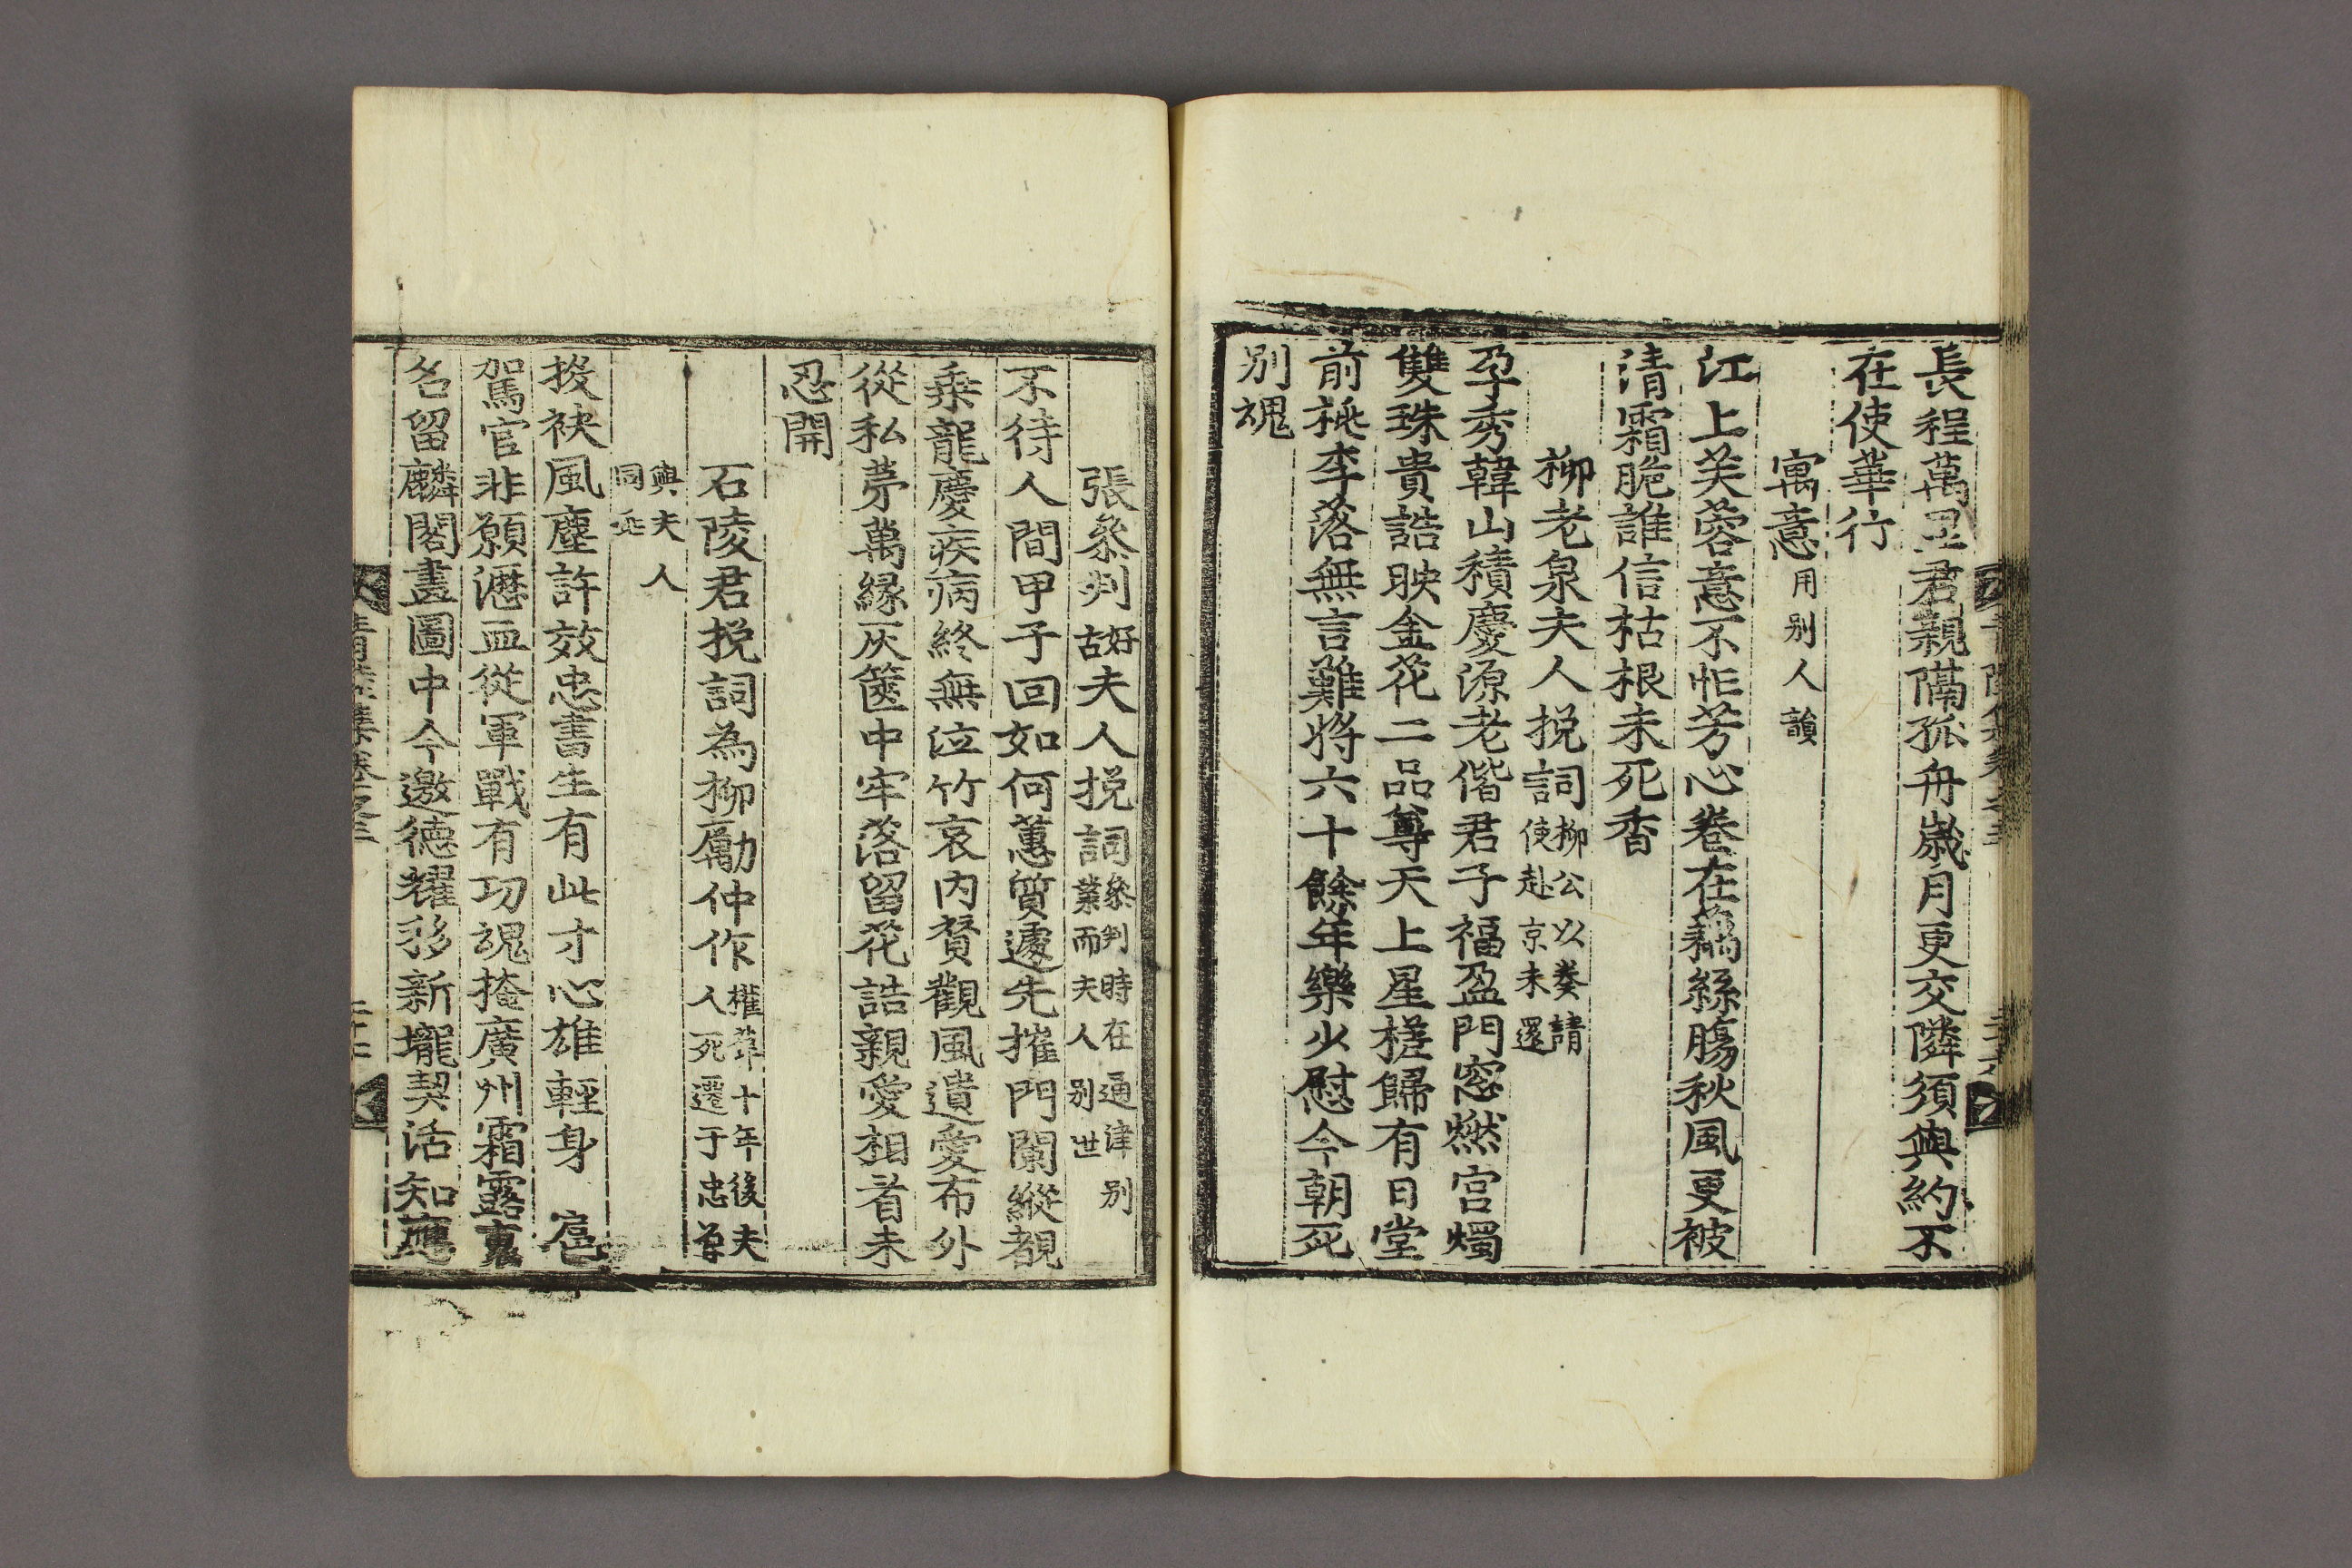 長程萬里君親隔孤舟歲月更交隣須與約不
在使華行
寓意用别人韻
江上芙蓉意不怕芳心卷在藕絲膓秋風更被
清霜脆誰信枯根未死香
柳老泉夫人挽詞柳公以奏請使赴京未還
孕秀韓山積慶源老偕君子福盈門窓燃宮燭
雙珠貴誥映金花二品尊天上星槎歸有日堂
前桃李落無言難將六十餘年樂少慰今朝死
别魂
張叅判好古夫人挽詞叅判時在通津别業而夫人别世
不待人間甲子回如何蕙質遽先摧門闌縱覩
乘龍慶疾病終無泣竹哀内賛觀風遺愛布外
從私夢萬縁灰篋中牢落留花誥親愛相看未
忍開
石陵君挽詞為柳勵仲作權葬十年後夫人死遷于忠州
與夫人同兆
投袂風塵許效忠書生有此才心雄輕身扈
駕官非願瀝血從軍戰有功魂掩廣州霜露裏
名留麟閣畫圖中今邀德耀移新壠契活知應